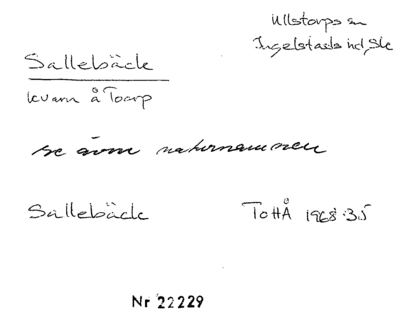 Ullstorps sn
Ingelstads hd, Sk
Sallebäck
kvarn å Torp
se även naturnamnen
Sallebäck ToHÅ 1968:35
Nr 22229